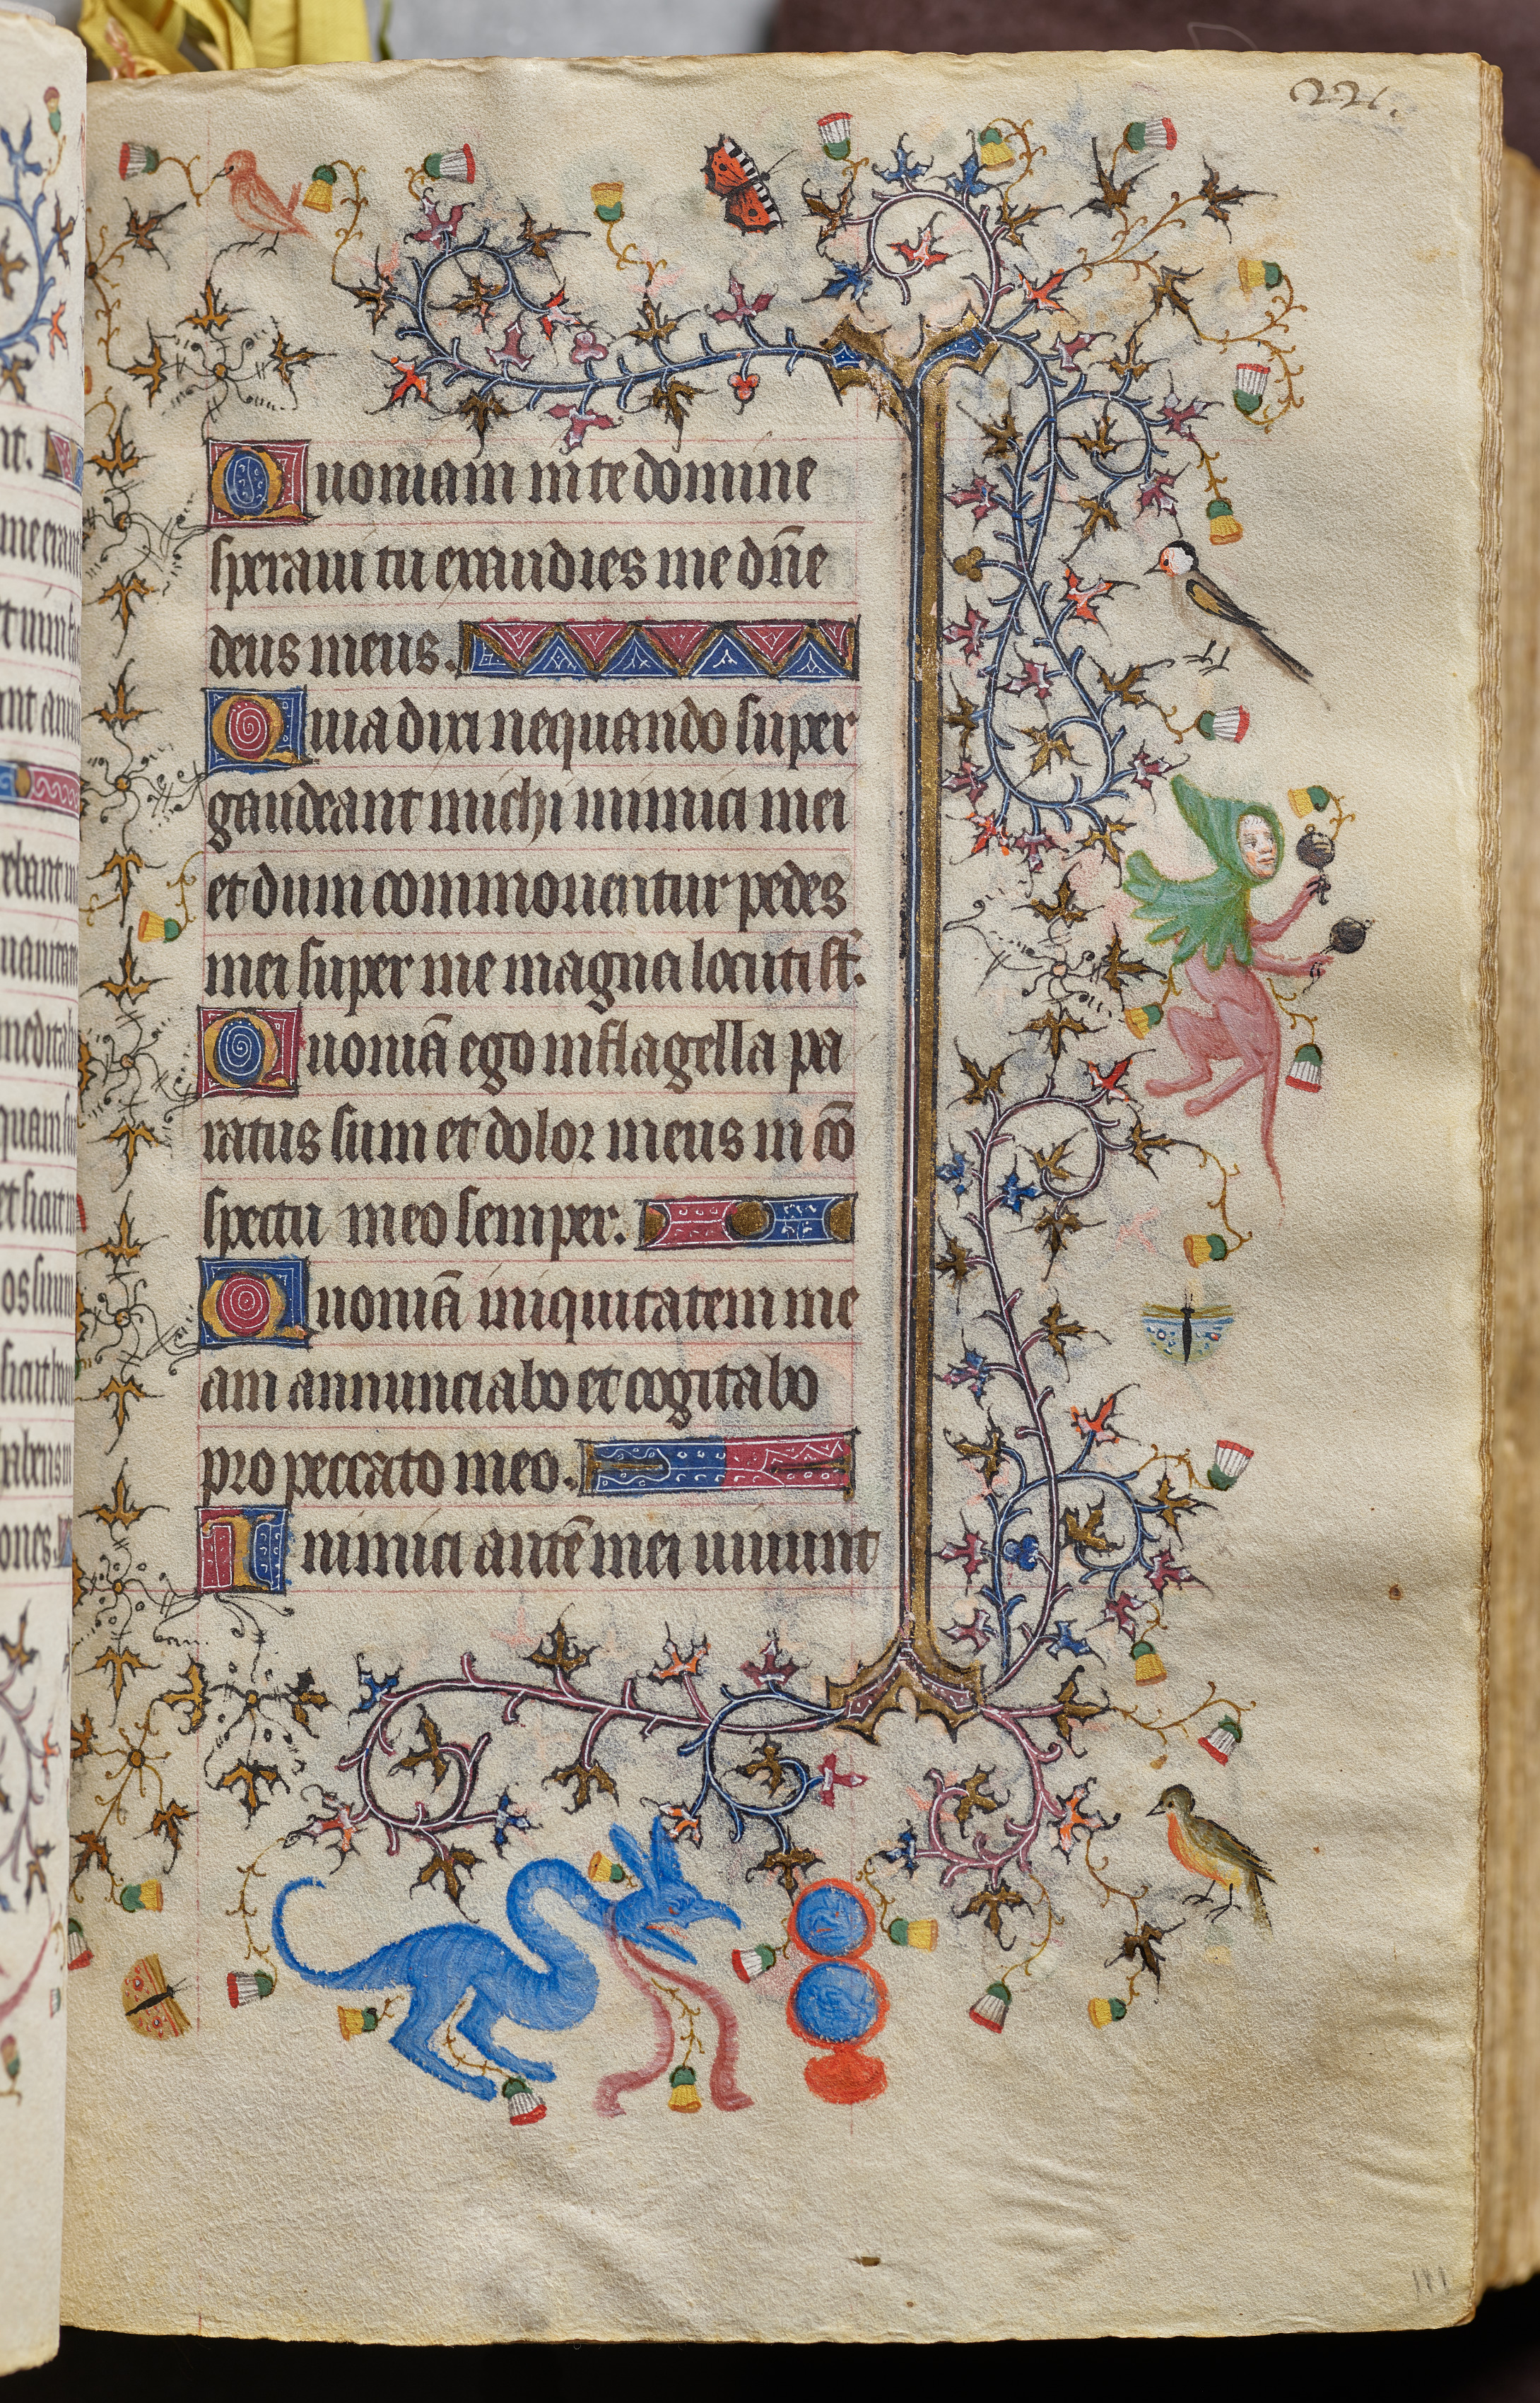 221.
Quoniam in te domine
speraui tu exaudies me dn̄e
deus meus.
Quia dixi nequando super
gaudeant michi inimici mei
et dum commouentur pedes
mei super me magna locuti st̄.
Quoniā ego in flagella pa
ratus sum et dolor meus in cō
spectu meo semper.
Quoniā iniquitatem me
am annunciabo et cogitabo
pro peccato meo.
Inimici autē mei uiuunt
111